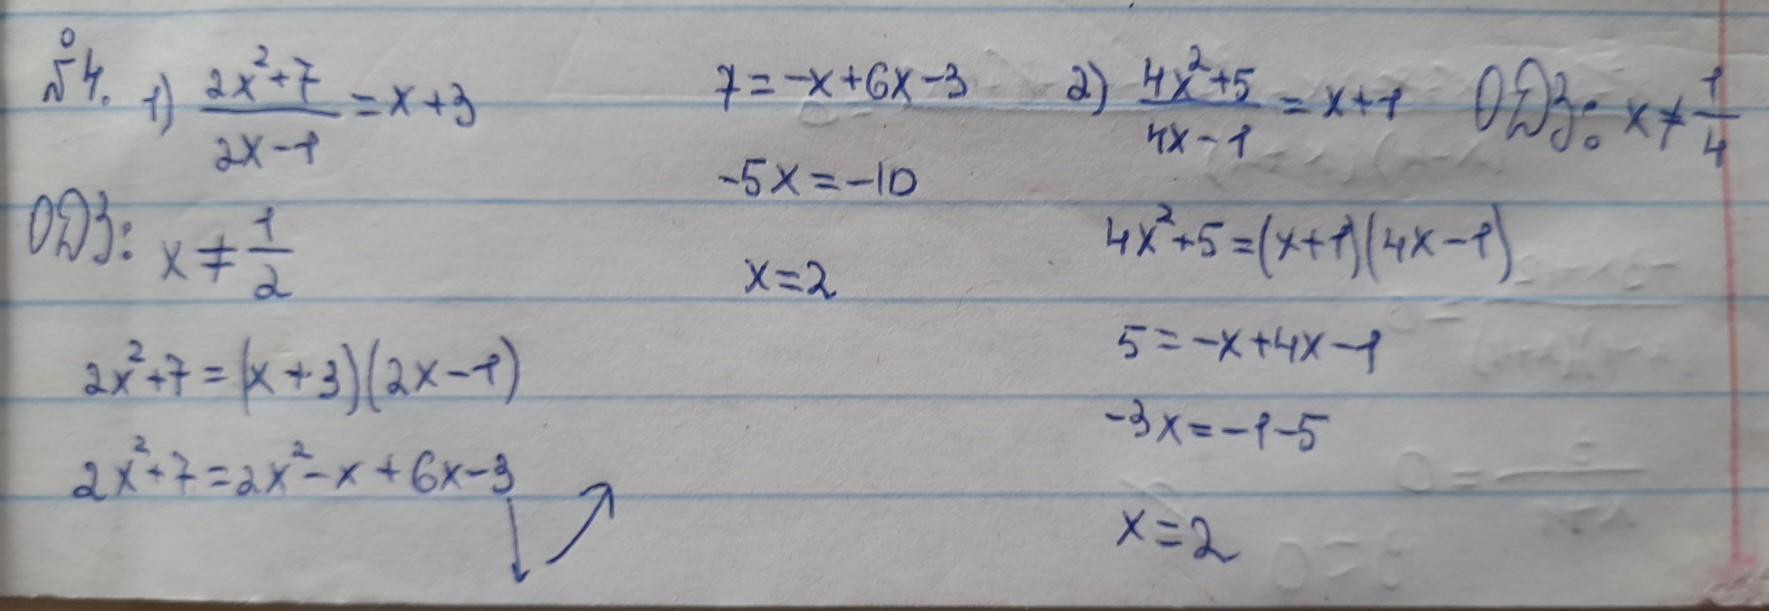 №4. 1) (2x²+7)/(2x-1) = x+3
ОДЗ: x ≠ 1/2
2x²+7=(x+3)(2x-1)
2x²+7=2x²-x+6x-3
7=-x+6x-3
-5x=-10
x=2
2) (4x²+5)/(4x-1) = x+1 ОДЗ: x ≠ 1/4
4x²+5=(x+1)(4x-1)
5=-x+4x-1
-3x=-1-5
x=2